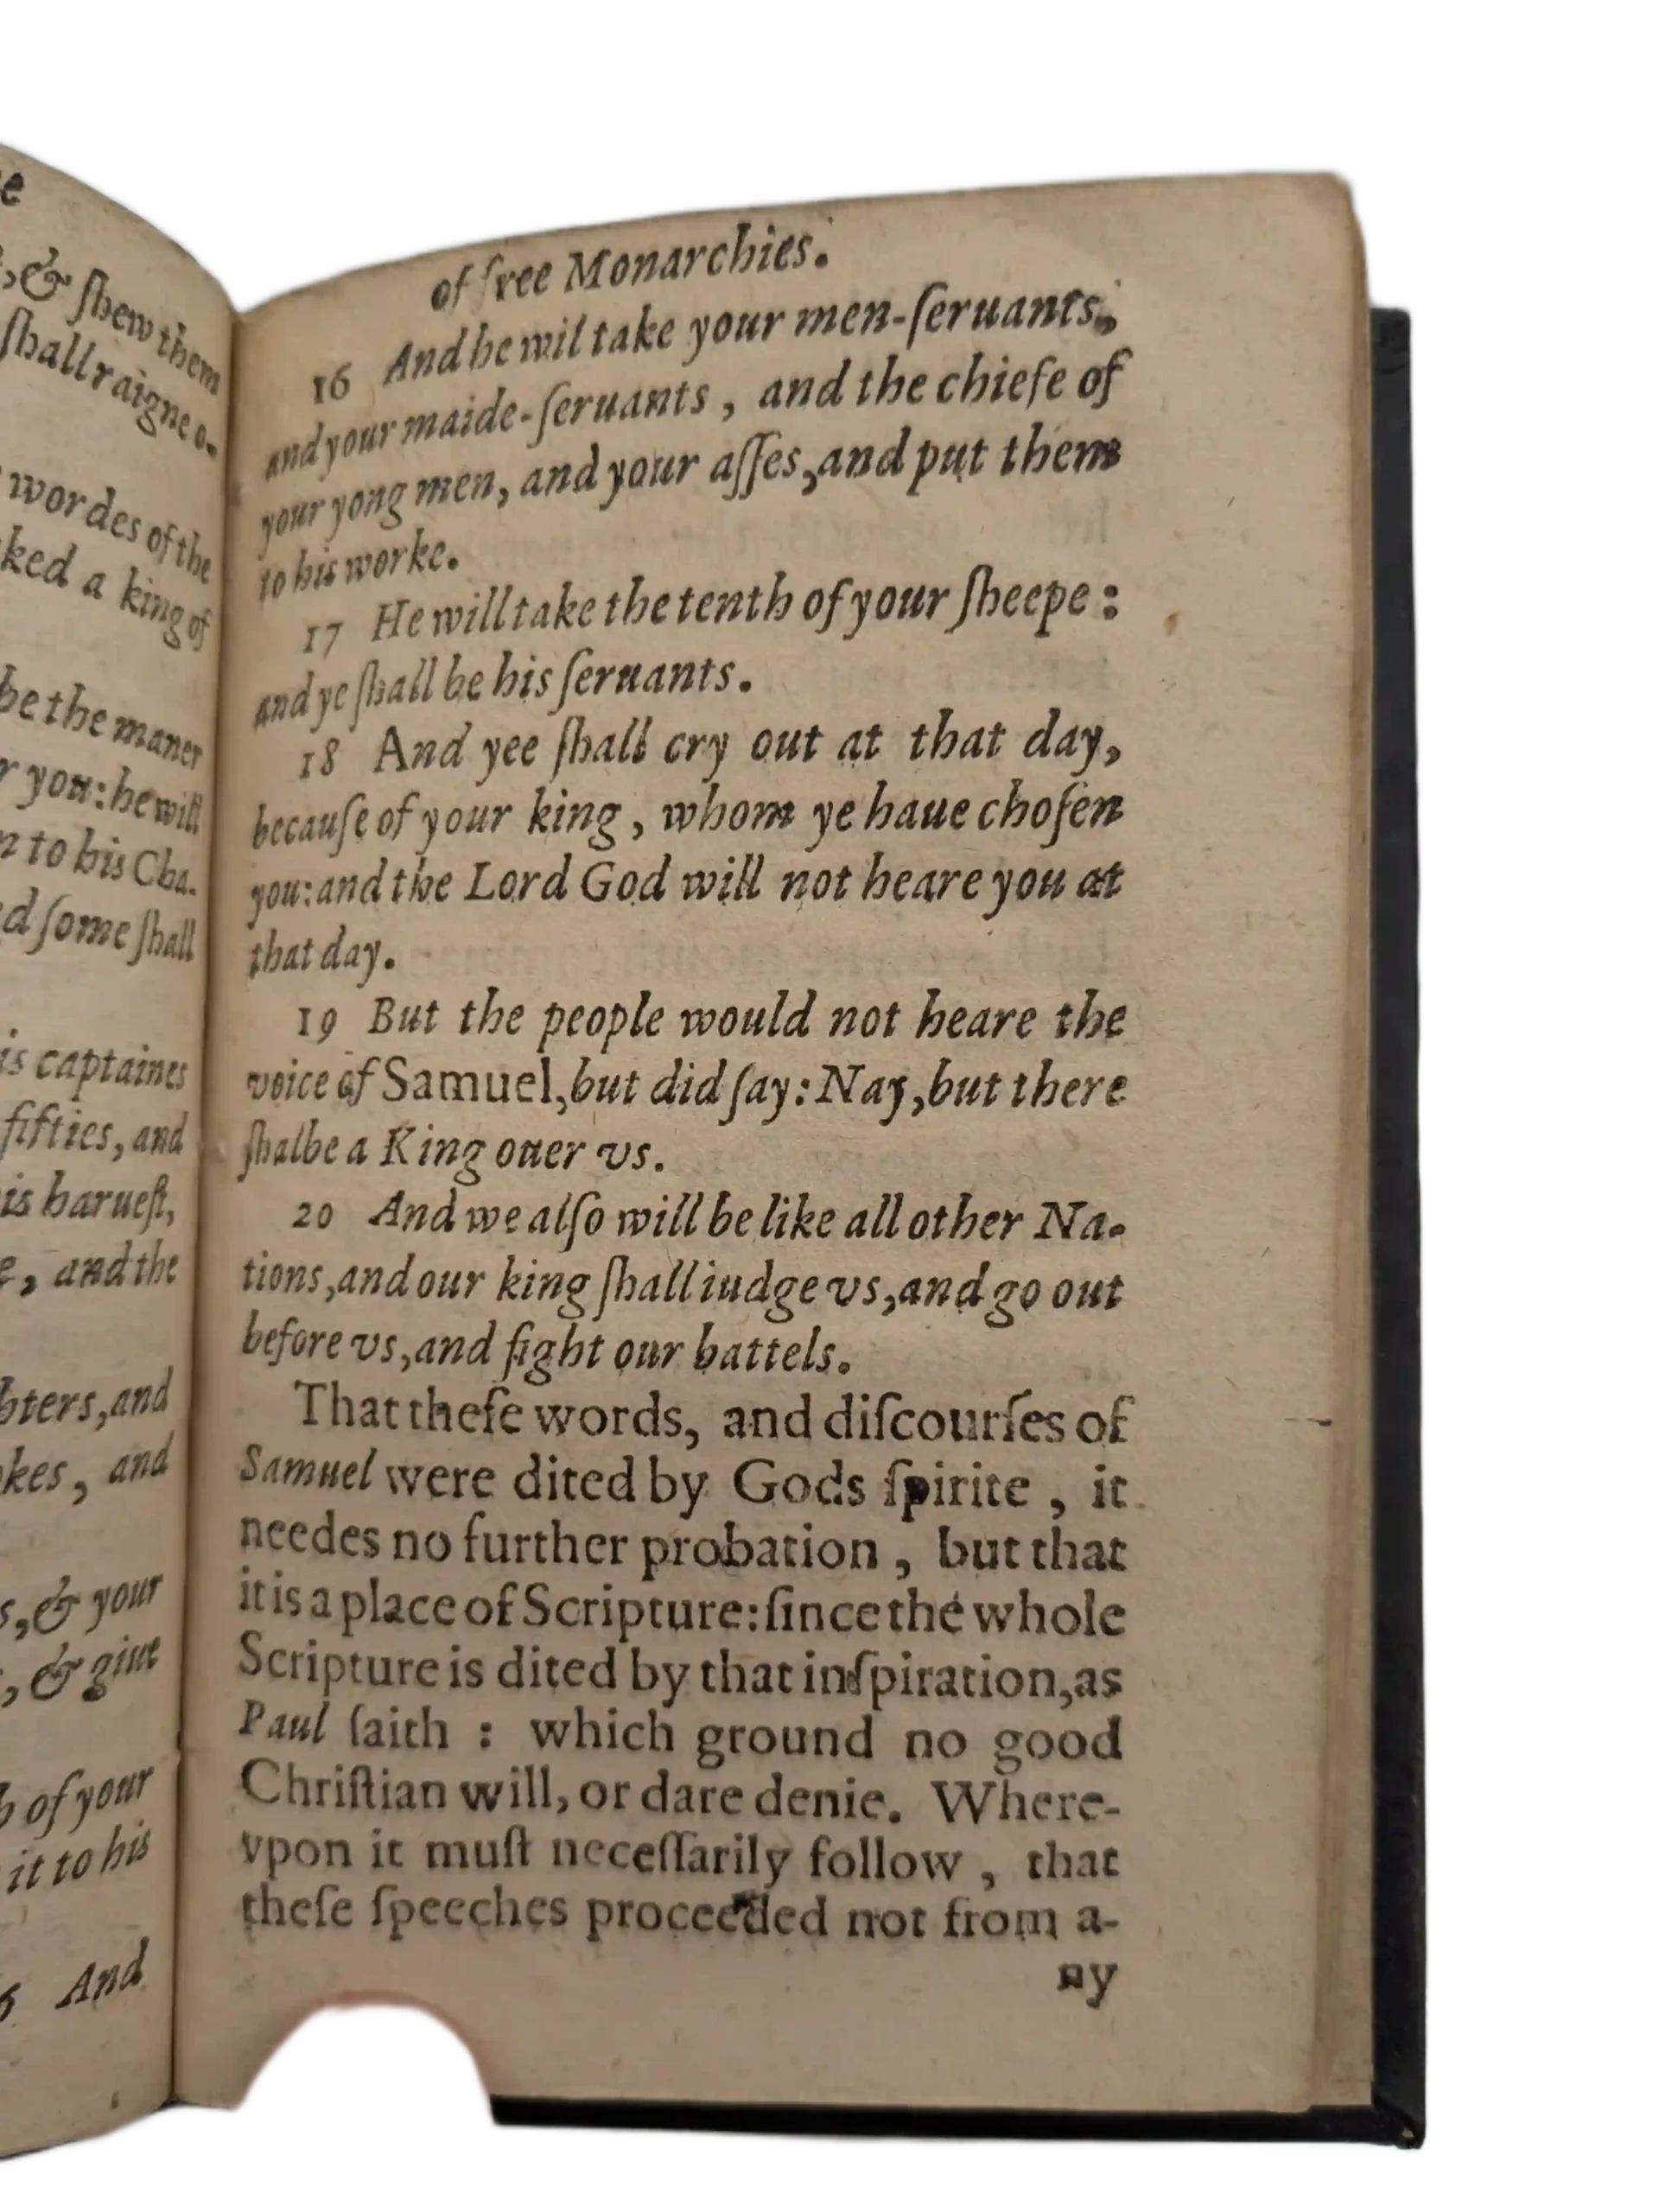 e
, & ſhew them
ſhall raigne o-
wordes of the
ked a king of
be the maner
r you: he will
n to his Cha-
d ſome ſhall
is captaines
fifties, and
is harueſt,
e, and the
hters, and
kes, and
s, & your
, & giue
h of your
it to his
6 And
of free Monarchies.
16 And he wil take your men-ſeruants,
and your maide-ſeruants, and the chiefe of
your yong men, and your aſſes, and put them
to his worke.
17 He will take the tenth of your ſheepe:
and ye ſhall be his ſeruants.
18 And yee ſhall cry out at that day,
becauſe of your king, whom ye haue choſen
you: and the Lord God will not heare you at
that day.
19 But the people would not heare the
voice of Samuel, but did ſay: Nay, but there
ſhalbe a King ouer vs.
20 And we alſo will be like all other Na-
tions, and our king ſhall iudge vs, and go out
before vs, and fight our battels.
That theſe words, and diſcourſes of
Samuel were dited by Gods ſpirite, it
needes no further probation, but that
it is a place of Scripture: ſince the whole
Scripture is dited by that inſpiration, as
Paul ſaith: which ground no good
Chriſtian will, or dare denie. Where-
vpon it muſt neceſſarily follow, that
theſe ſpeeches proceeded not from a-
ny